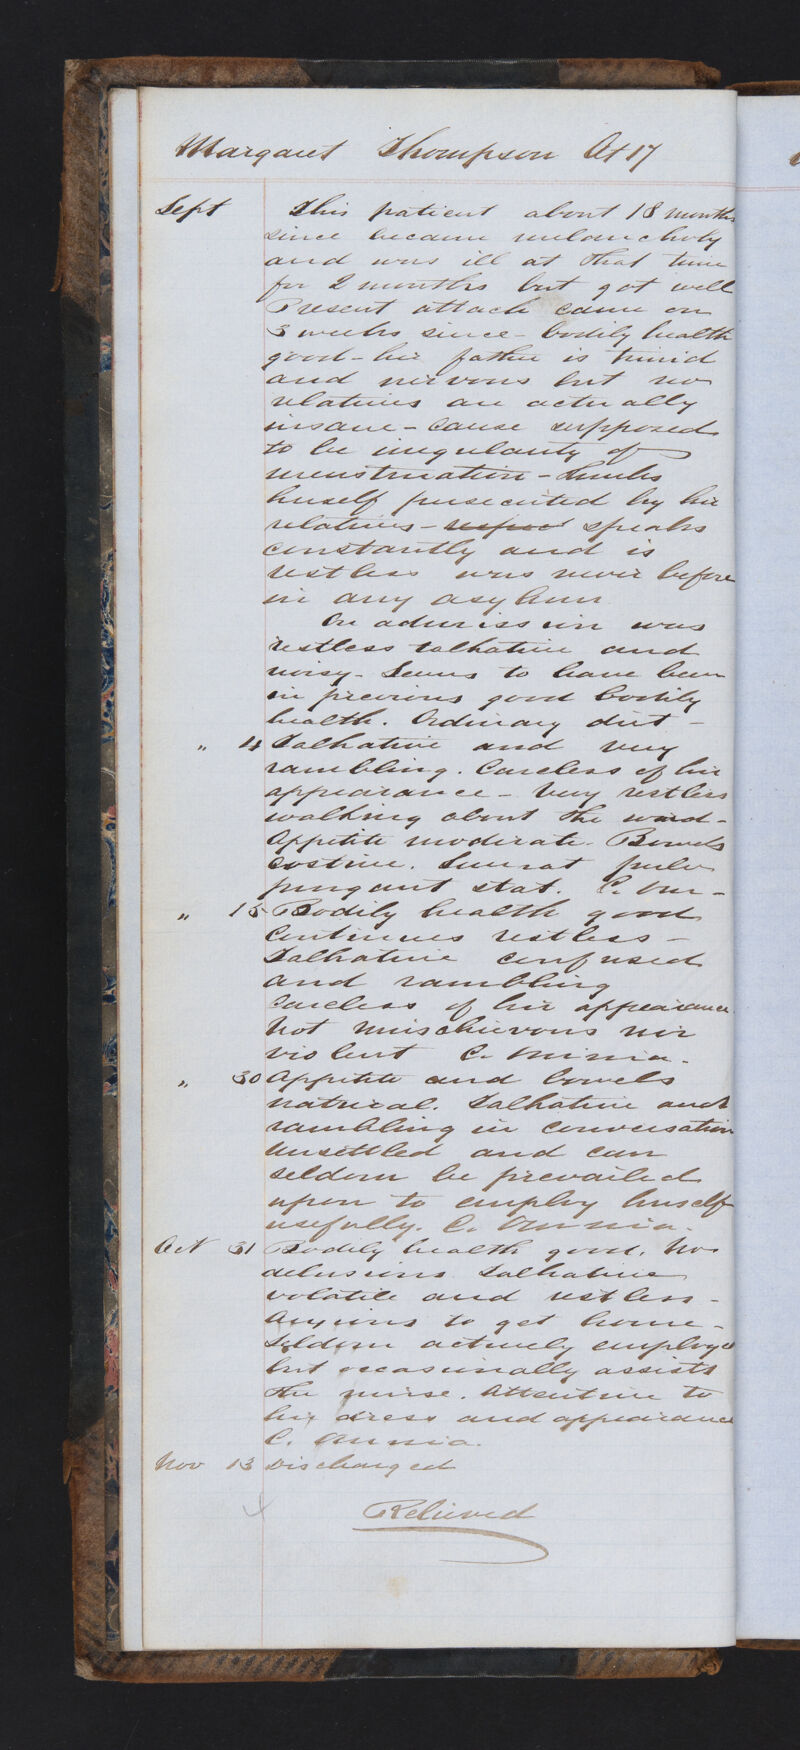 Margaret Thompson Æt 17
Sept This patient about 18 months
since became melancholy
and was ill at that time
for 2 months but got well
Present attack came on
3 weeks since - bodily health
good - her father is timid
and nervous but no
relatives are actually
insane - cause supposed
to be irregularity of
menstruation - thinks
herself persecuted by her
relatives - speaks
constantly and is
restless was never before
in any asylum
On admission was
restless talkative and
noisy - Seems to have been
in previous good bodily
health. Ordinary diet -
" 4 Talkative and very
rambling. Careless of her
appearance - Very restless
walking about the ward -
Appetite moderate. Bowels
costive. Sumat pulv
purgant stat. C. Om -
" 15 Bodily health good
Continues restless -
Talkative confused
and rambling
Careless of her appearance
Not mischievous nor
violent C. Omnia.
" 30 Appetite and bowels
natural. Talkative and
rambling in conversation
Unsettled and can
seldom be prevailed
upon to employ herself
usefully. C. Omnia.
Oct 31 Bodily health good. No
delusions Talkative
volatile and restless -
Anxious to get home -
Seldom actively employed
but occasionally assists
the nurse. Attentive to
her dress and appearance
C. Omnia.
Nov 13 Discharged
Relieved